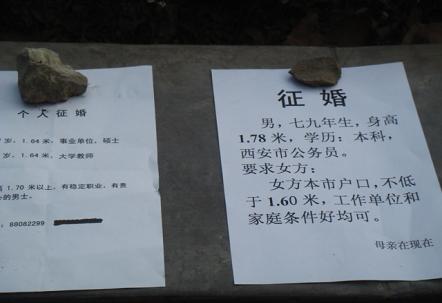 个人征婚
岁，1.64 米，事业单位，硕士
岁，1.64 米，大学教师
1.70 米以上，有稳定职业，有责
的男士。
88082299
征 婚
男，七九年生，身高
1.78 米，学历：本科，
西安市公务员。
要求女方：
女方本市户口，不低
于 1.60 米，工作单位和
家庭条件好均可。
母亲在现在